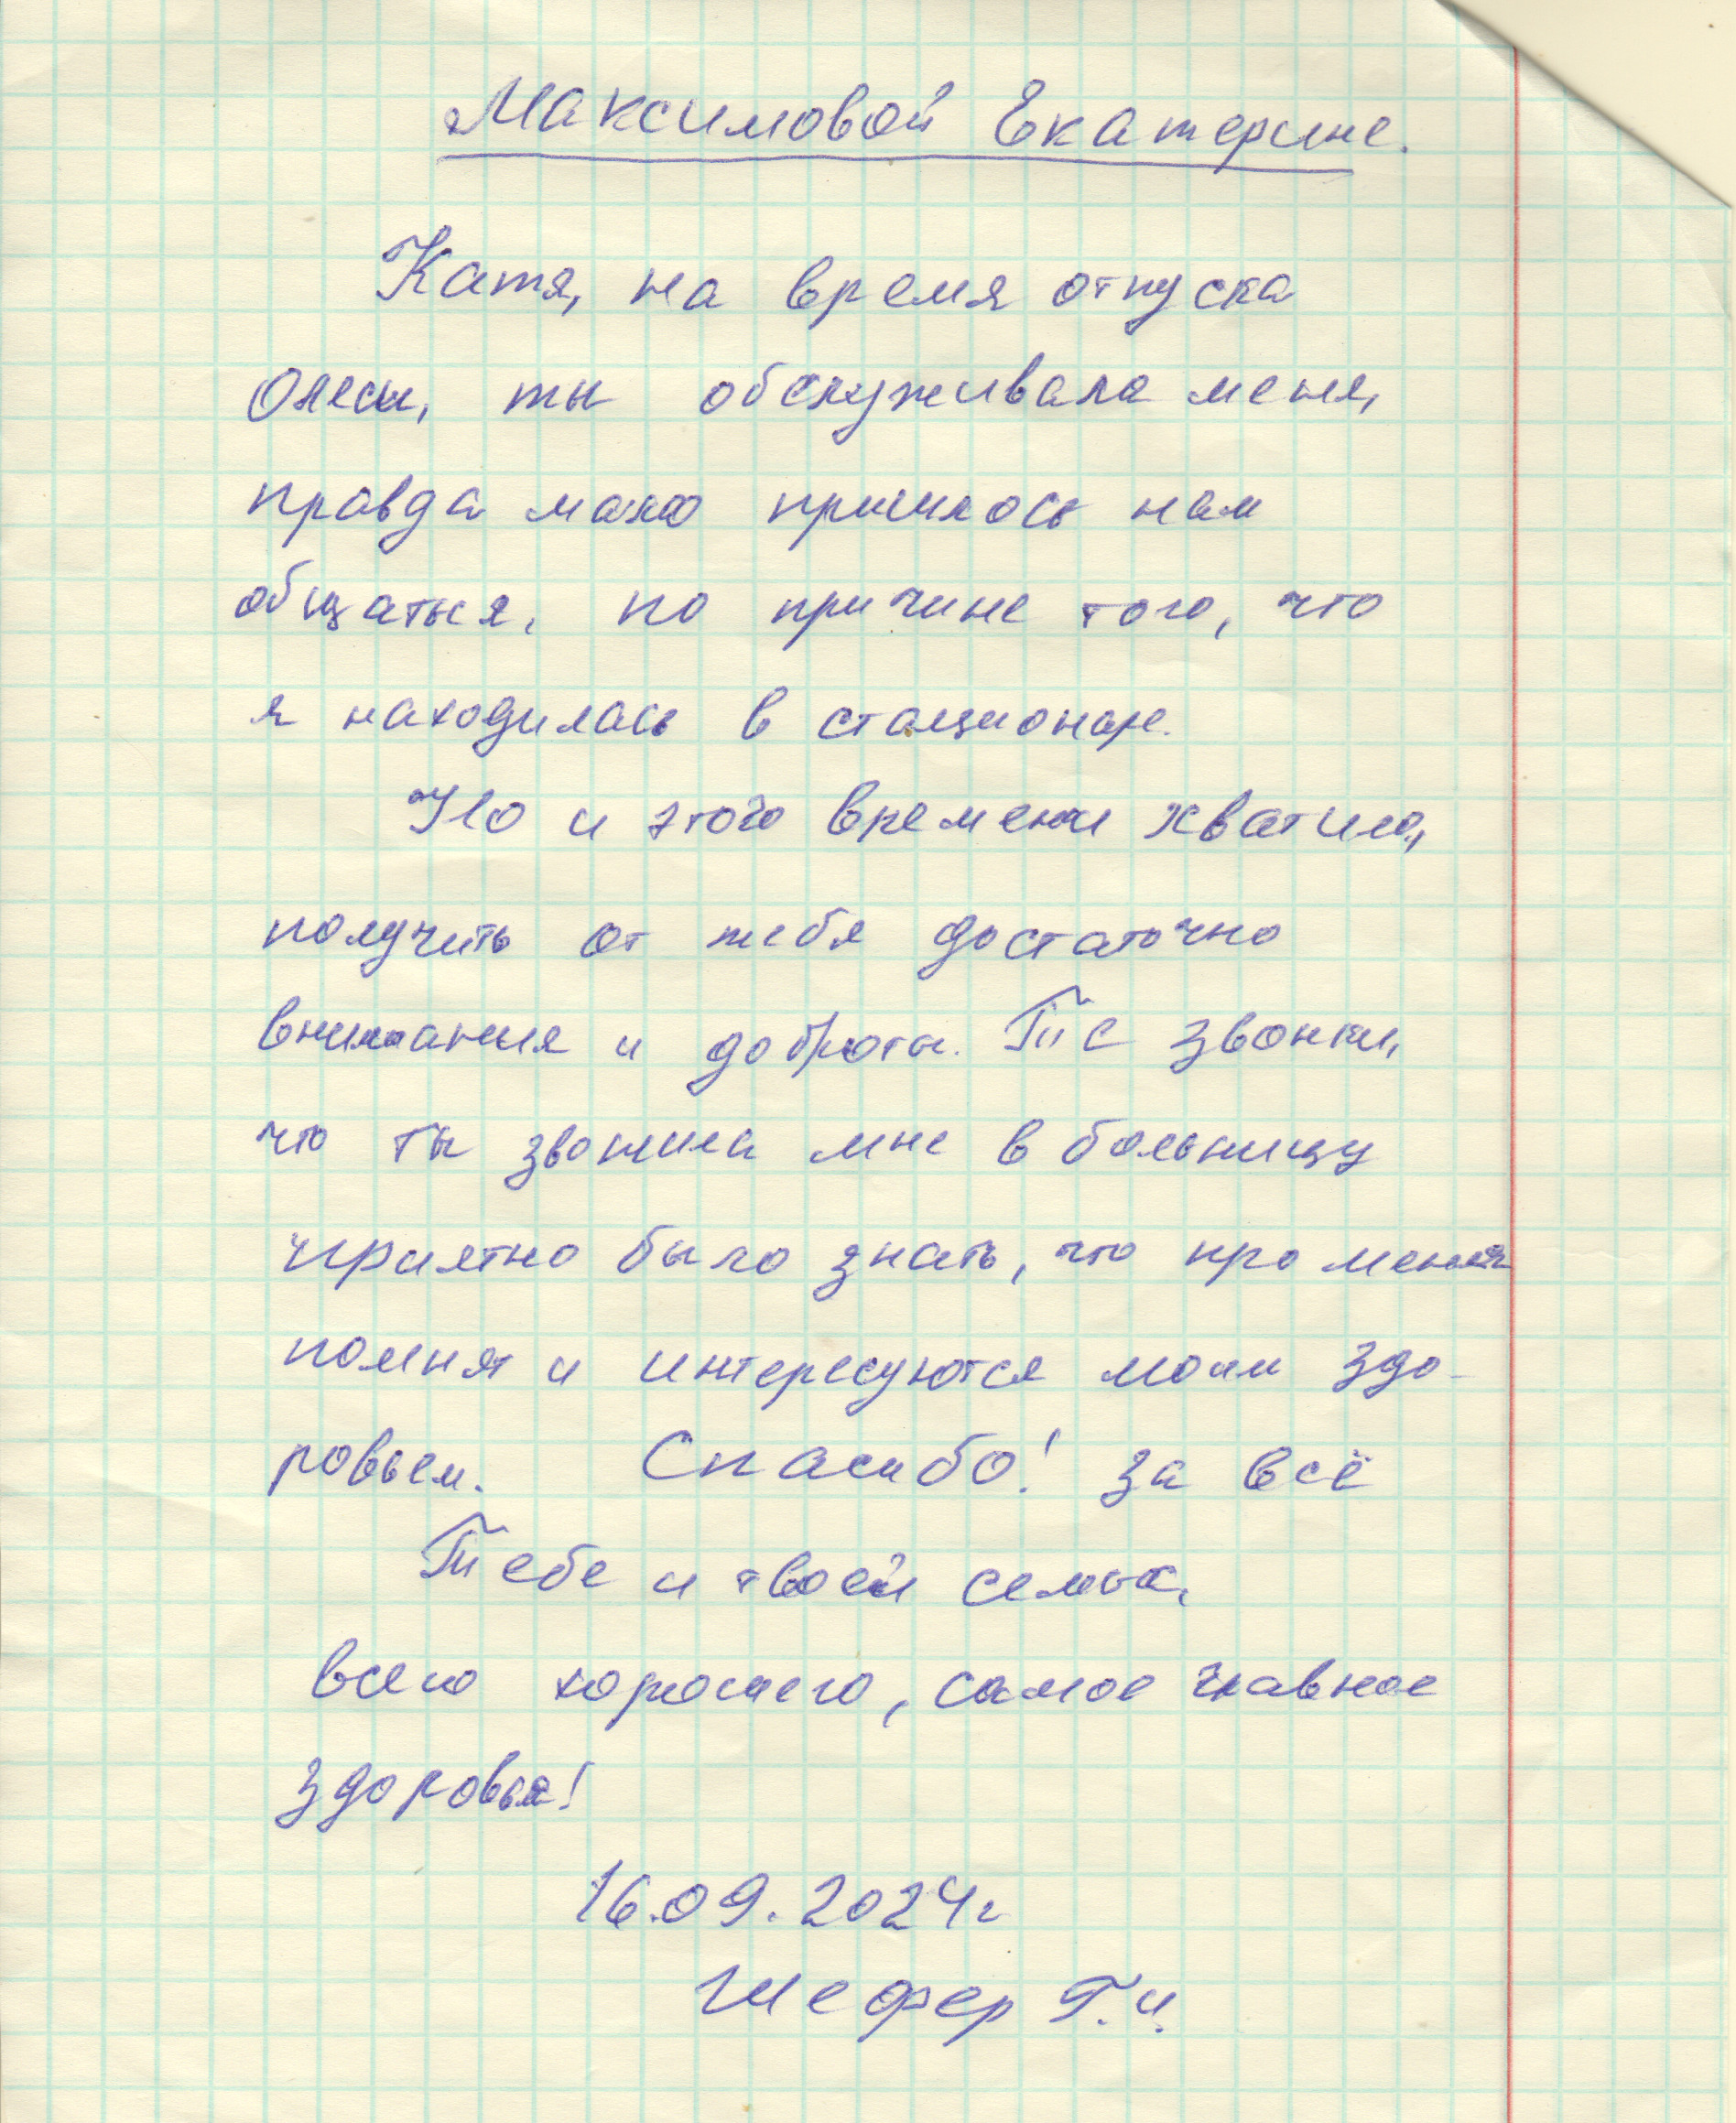 Максимовой Екатерине.
Катя, на время отпуска
Олеси, ты обслуживала меня,
правда мало пришлось нам
общаться, по причине того, что
я находилась в стационаре.
Но и этого времени хватило,
получить от тебя достаточно
внимания и доброты. Те звонки,
что ты звонила мне в больницу
приятно было знать, что про меня
помнят и интересуются моим здо-
ровьем. Спасибо! за всё
Тебе и твоей семье,
всего хорошего, самое главное
здоровья!
16.09.2024г
Шефер Г.И.